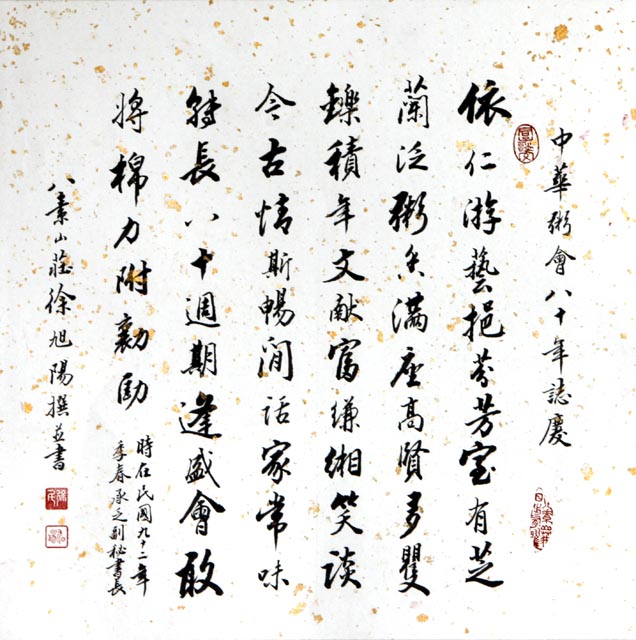 中華粥會八十年誌慶
依仁游藝挹芬芳室有芝
蘭泛粥香滿座高賢多矍
鑠積年文献富縑緗笑談
今古情斯暢閒話家常味
特長八十週期逢盛會敢
將棉力附勷勷
時在民國九十二年
季春承乏副秘書長
八素山莊徐旭陽撰並書